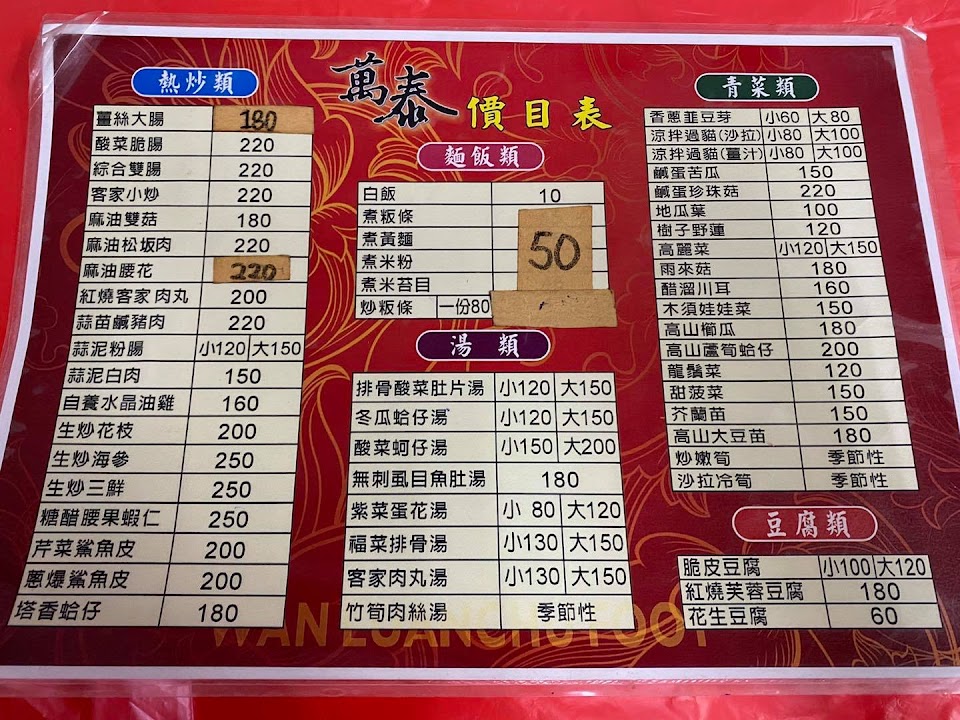 萬泰 價目表
熱炒類
薑絲大腸 180
酸菜脆腸 220
綜合雙腸 220
客家小炒 220
麻油雙菇 180
麻油松坂肉 220
麻油腰花 220
紅燒客家肉丸 200
蒜苗鹹豬肉 220
蒜泥粉腸 小120 大150
蒜泥白肉 150
自養水晶油雞 160
生炒花枝 200
生炒海參 250
生炒三鮮 250
糖醋腰果蝦仁 250
芹菜鯊魚皮 200
蔥爆鯊魚皮 200
塔香蛤仔 180
麵飯類
白飯 10
煮粄條
煮黃麵
煮米粉
煮米苔目
50
炒粄條 一份80
湯 類
排骨酸菜肚片湯 小120 大150
冬瓜蛤仔湯 小120 大150
酸菜蚵仔湯 小150 大200
無刺虱目魚肚湯 180
紫菜蛋花湯 小 80 大120
福菜排骨湯 小130 大150
客家肉丸湯 小130 大150
竹筍肉絲湯 季節性
青菜類
香蔥韮豆芽 小60 大80
涼拌過貓(沙拉) 小80 大100
涼拌過貓(薑汁) 小80 大100
鹹蛋苦瓜 150
鹹蛋珍珠菇 220
地瓜葉 100
樹子野蓮 120
高麗菜 小120 大150
雨來菇 180
醋溜川耳 160
木須娃娃菜 150
高山櫛瓜 180
高山蘆筍蛤仔 200
龍鬚菜 120
甜菠菜 150
芥蘭苗 150
高山大豆苗 180
炒嫩筍 季節性
沙拉冷筍 季節性
豆腐類
脆皮豆腐 小100 大120
紅燒芙蓉豆腐 180
花生豆腐 60
WAN LUANCHUFOOT